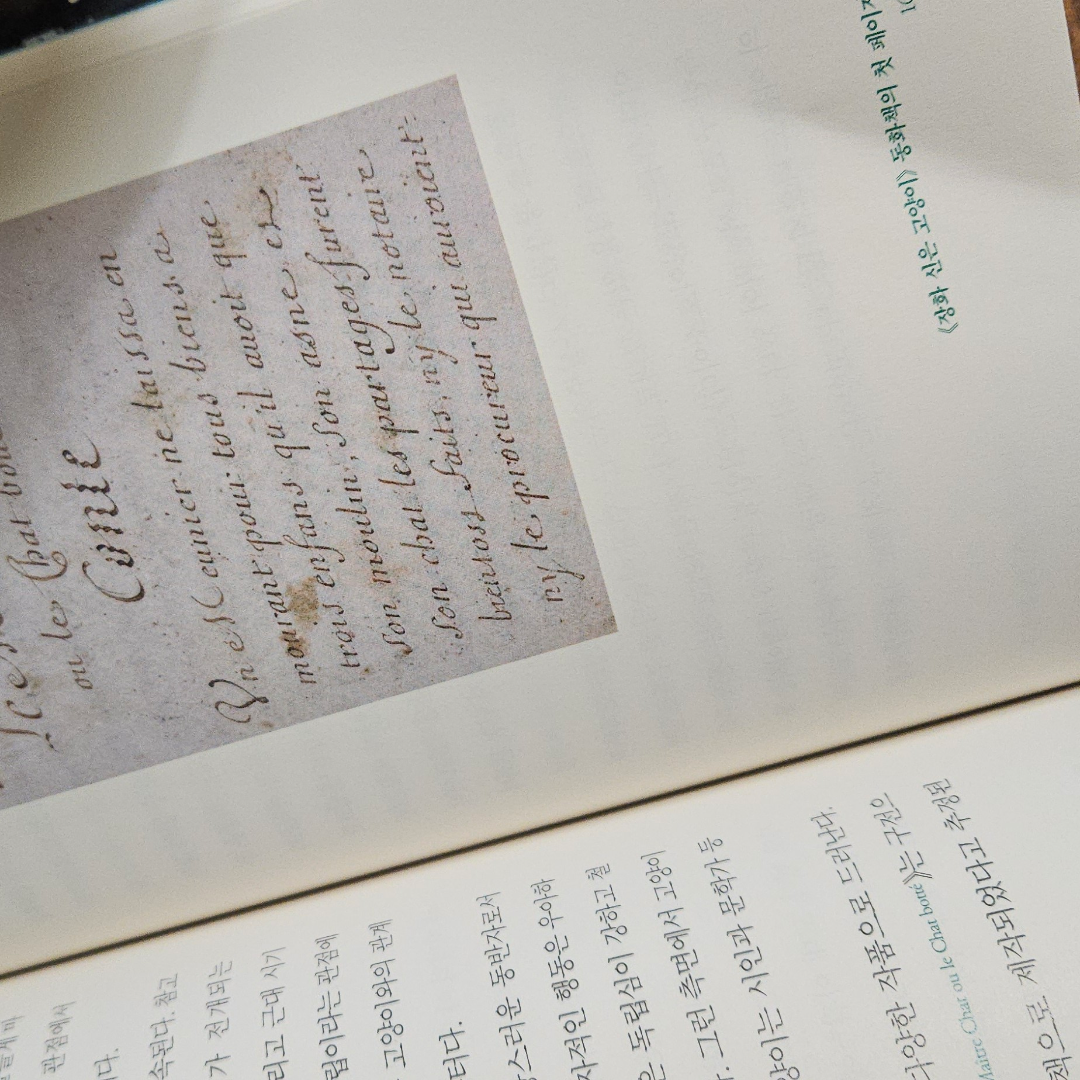 관점에서
다.
속된다. 참고
가 전개되는
리고 근대 시기
립이라는 관점에
고양이와의 관계
터다.
스러운 동반자로서
자적인 행동은 우아하
은 독립심이 강하고 철
그런 측면에서 고양이
양이는 시인과 문학가 등
다양한 작품으로 드러난다.
Maître Chat ou le Chat botté》는 구전으
책으로 제작되었다고 추정된
ou le Chat
Conte
Vn Meunier ne laissa en
mourant pour tous biens a
trois enfans qu'il avoit que
son moulin, son asne et
son chat les partages furent
bientost faits, ny le notaire
ny le procureur qui auroient
《장화 신은 고양이》 동화책의 첫 페이지